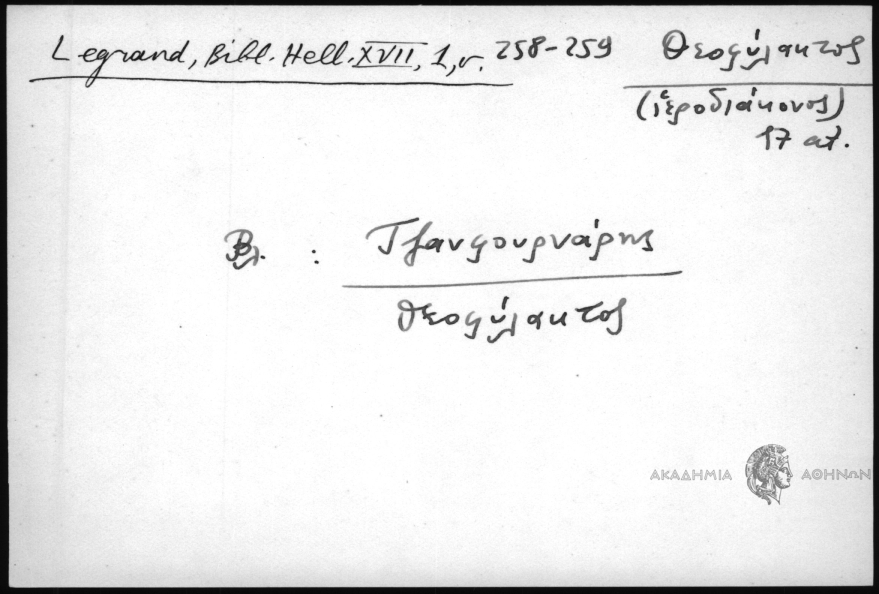 Legrand, Bibl. Hell. XVII, 1, σ. 258-259
Θεοφύλακτος
(ἱεροδιάκονος)
17 αἰ.
Βλ. : Τζανφουρνάρης
Θεοφύλακτος
ΑΚΑΔΗΜΙΑ ΑΘΗΝΩΝ